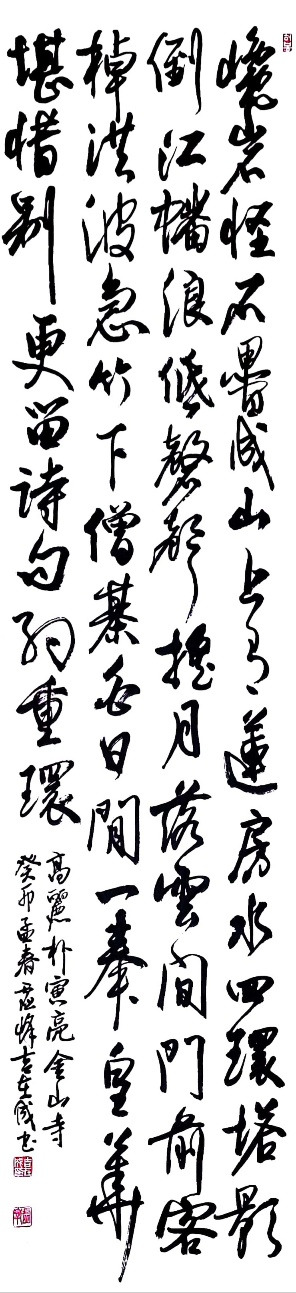 巉岩怪石疊成山上有蓮房水四環塔影
倒江幡浪低磬聲搖月落雲间門前客
棹洪波急竹下僧棊白日閒一奉皇華
堪惜別更留詩句約重環
高麗朴寅亮金山寺
癸卯孟春峰吉在成书